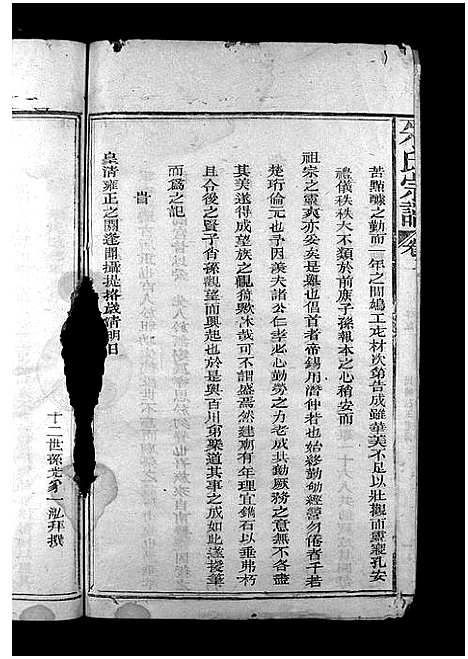 氏宗譜 卷一
苦黯醵之勤而一年之間鳩工庀材次第告成雖華美不足以壯觀而靈寢孔安
禮儀秩秩大不類於前庶子孫報本之心稍安而
祖宗之靈爽亦妥矣是舉也倡首者帝錫用濟仲若也始終勤劬經營勿倦者千若
楚珩倫元也予因羨夫諸公仁孝必心勤勞之力老成共勷厥務之意無不各盡
其美遂得成望族之觀猗歟休哉可不謂盛焉然建廟有年理宜鐫石以垂弗朽
且合後之賢子肖孫觀望而興起也於與百川爾聚道其事之成如此遂援筆
而為之記
旹
皇清雍正之閼逢閹攝提格歲清明日
十二世孫 一泓拜撰